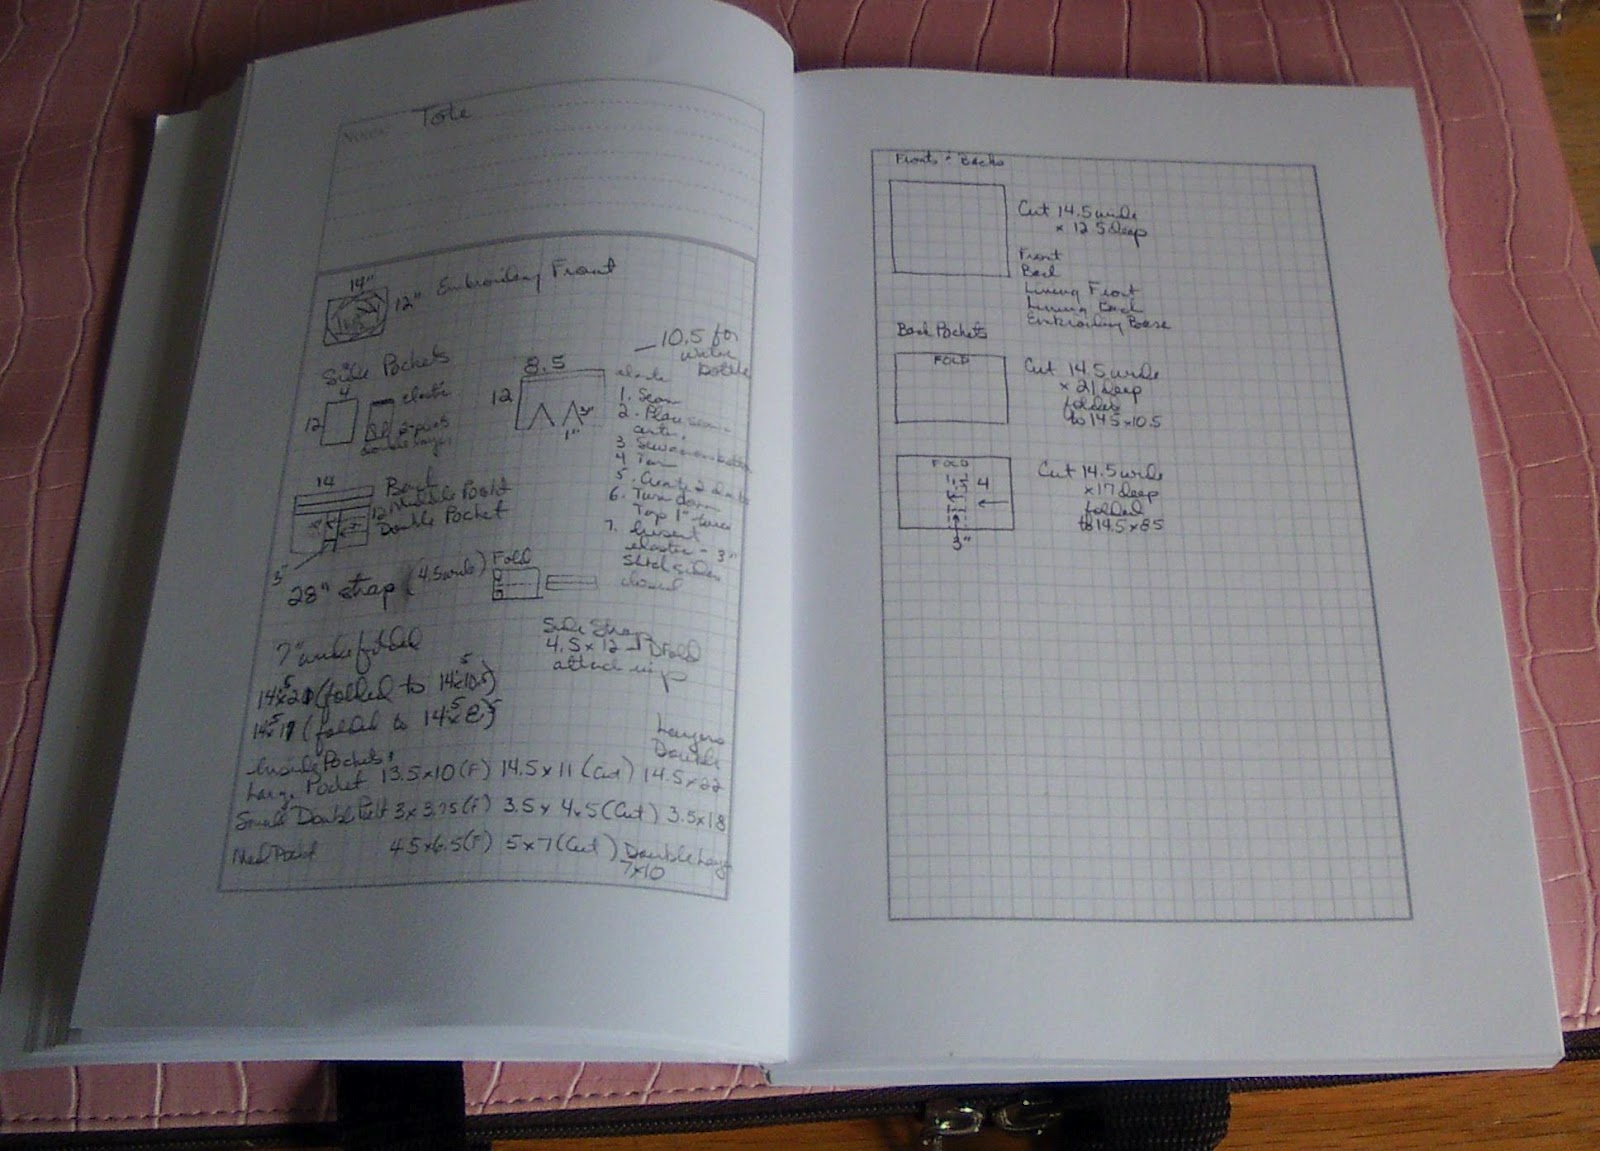 Tote
14"
12" Embroidery Front
Side Pockets
4
12
elastic
8.5
12
3"
1"
10.5 for
water
bottle
1. Seam
2. Place seam -
4 Turn
6. Turn down
Top 1"
7. Insert
elastic - 3"
Stitch sides
closed
14
Back
12 Middle Pocket
Double Pocket
3"
28" strap (4.5 wide) Fold
Side Strap
4.5 x 12 Fold
attach
7" wide folded
14.5x21 (folded to 14.5x10.5)
14.5x17 (folded to 14.5x8.5)
Inside Pockets:
Large Pocket 13.5x10 (F) 14.5x11 (Cut) 14.5x22
Double
Small Double Pckt 3x3.75 (F) 3.5x4.5 (Cut) 3.5x18
Med Pocket 4.5x6.5 (F) 5x7 (Cut) Double
7x10
Fronts + Backs
Cut 14.5 wide
x 12.5 deep
Front
Back
Lining Front
Lining Back
Embroidery Base
Back Pockets
FOLD
Cut 14.5 wide
x 21 deep
folded
to 14.5x10.5
FOLD
4
3"
Cut 14.5 wide
x17 deep
folded
to 14.5x8.5